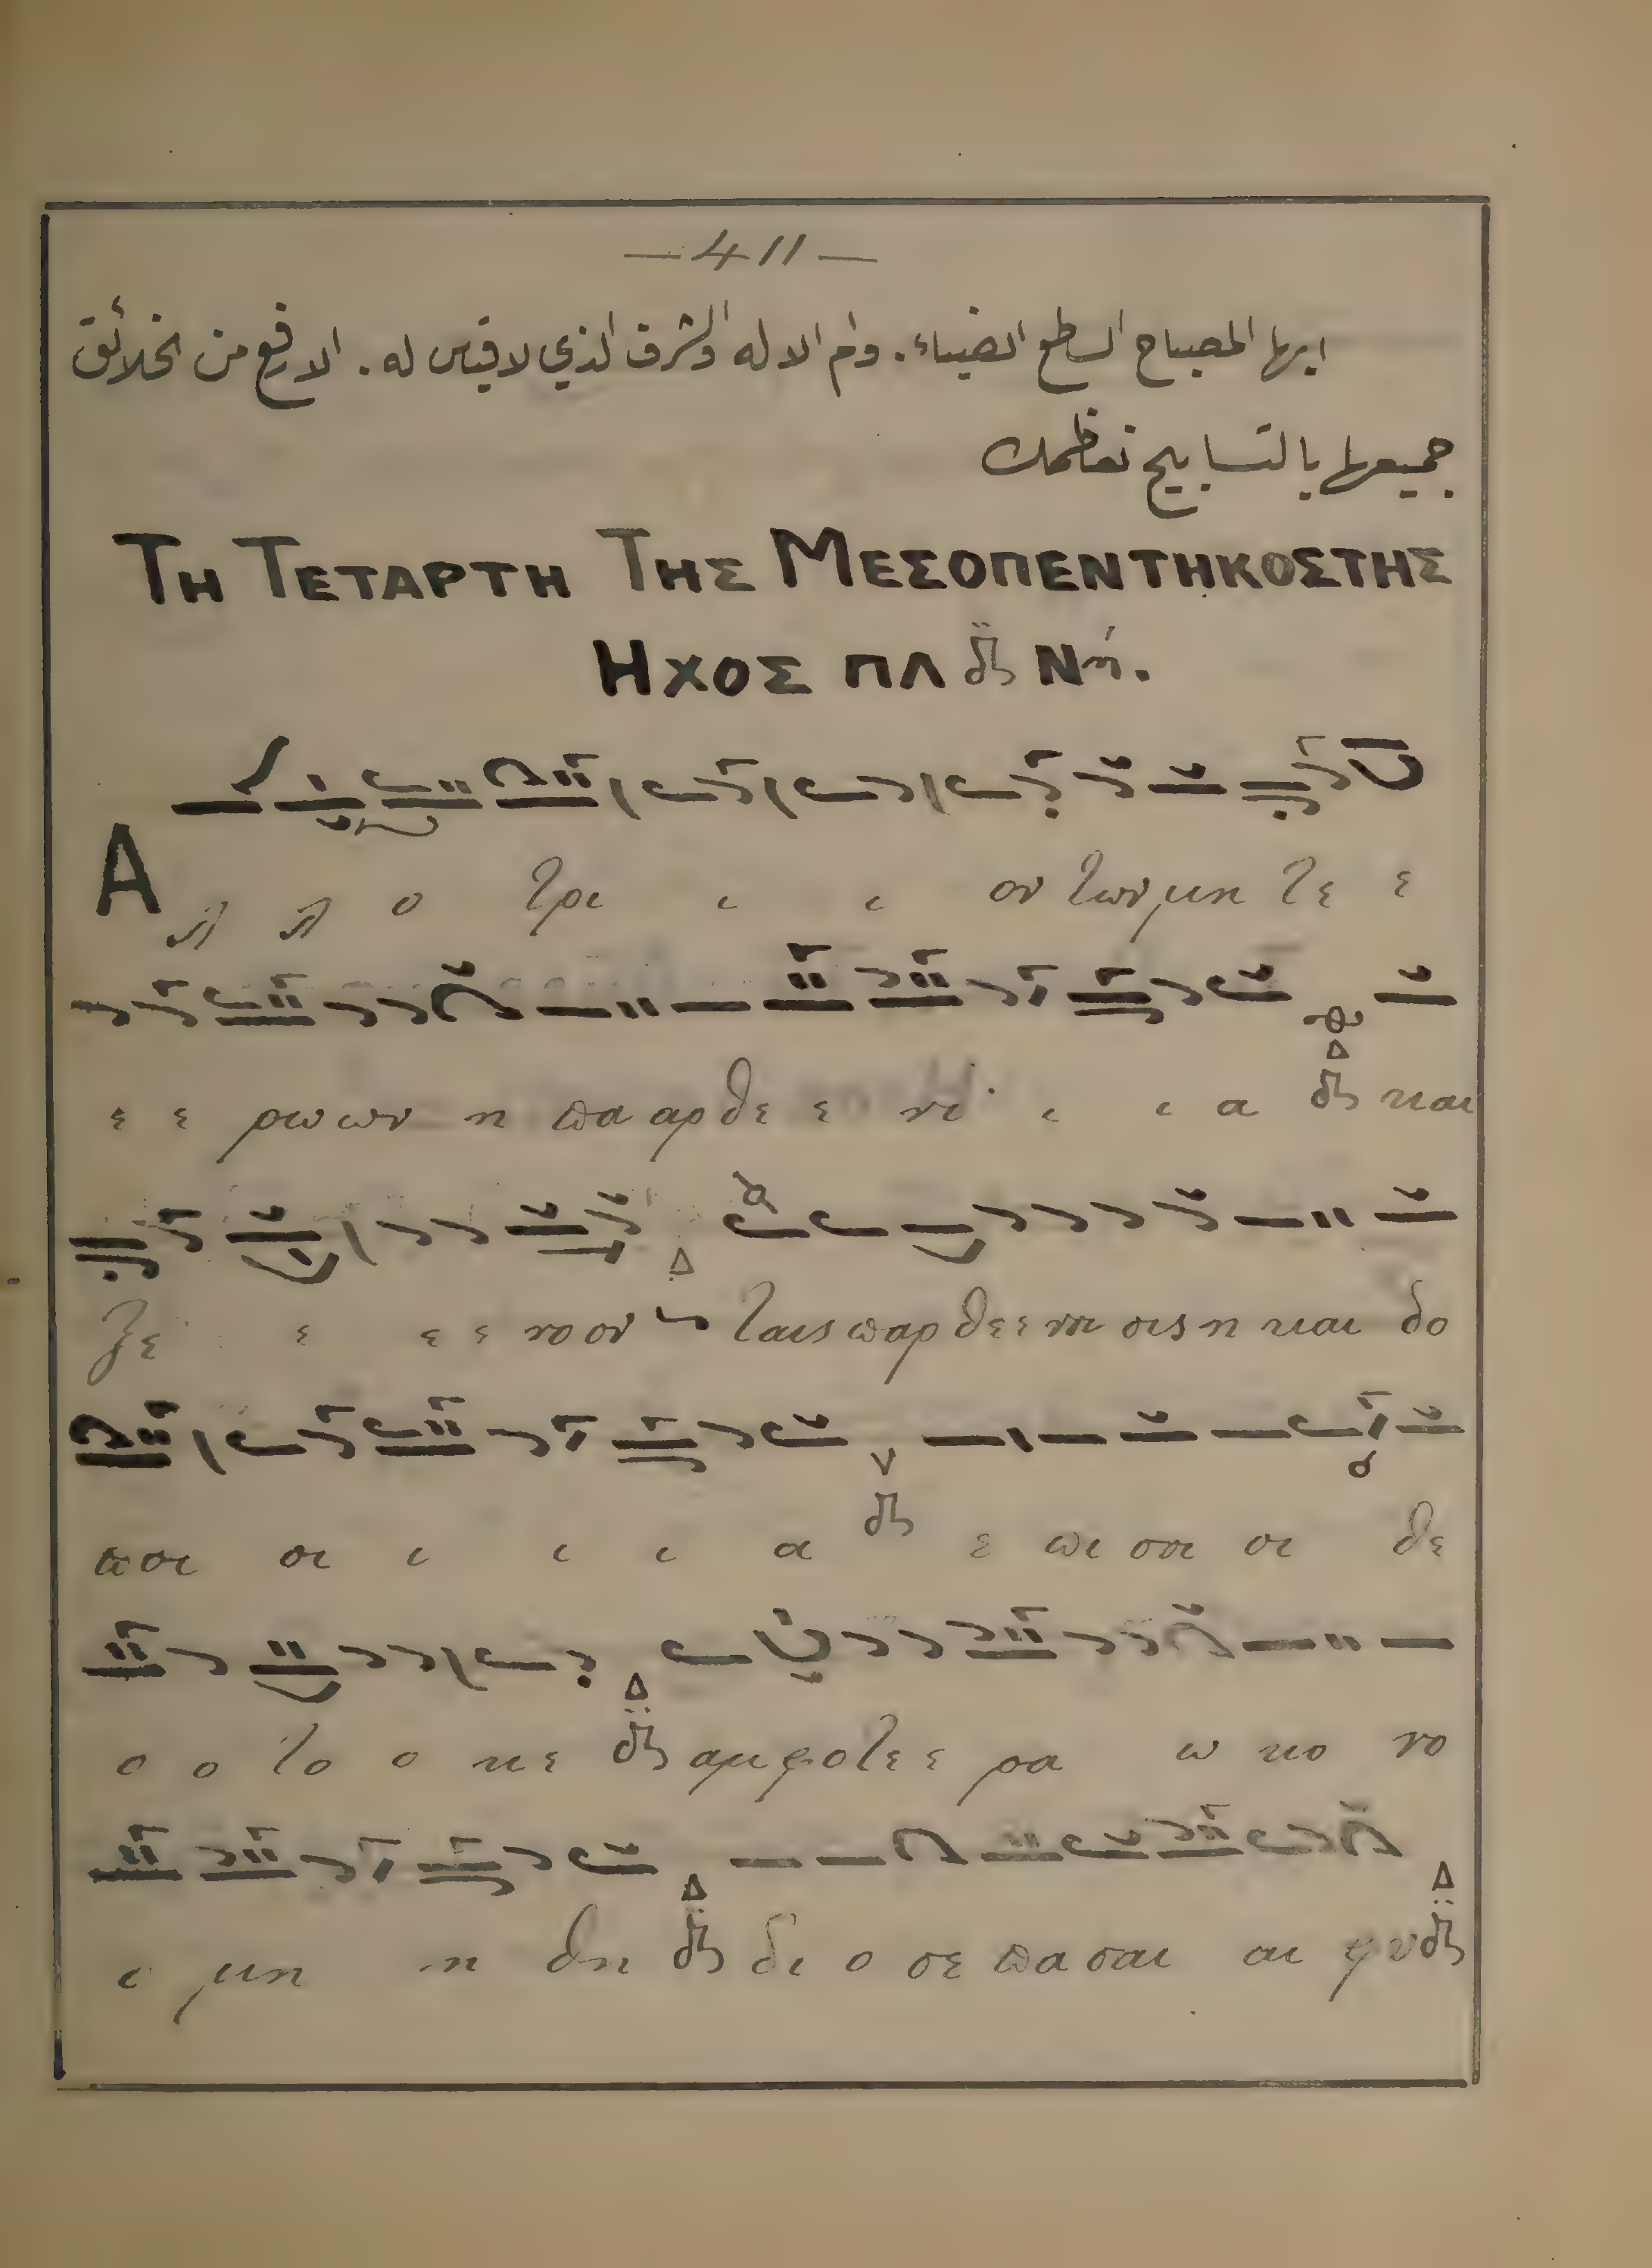 — 411 —
ايها المصباح الساطع الضياء. وام الاله والشرف الذي لا قياس له. الارفع من الخلائق
جميعها بالتسابيح نعظمك
ΤΗ ΤΕΤΑΡΤΗ ΤΗΣ ΜΕΣΟΠΕΝΤΗΚΟΣΤΗΣ
ΗΧΟΣ ΠΛ Νη.
Α λ λ ο τρι ι ι ον των μη τε ε
ε ε ρω ων η πα αρ θε ε νι ι ι α και
ξε ε ε ε νο ον ταις παρ θε ε νοι οις η και δο
παι δο ποι ι ι ι α ε πι σοι οι θε
ο ο το ο κε αμ φο τε ε ρα ω κο νο
ι μη η θη δι ο σε πα σαι αι φυ